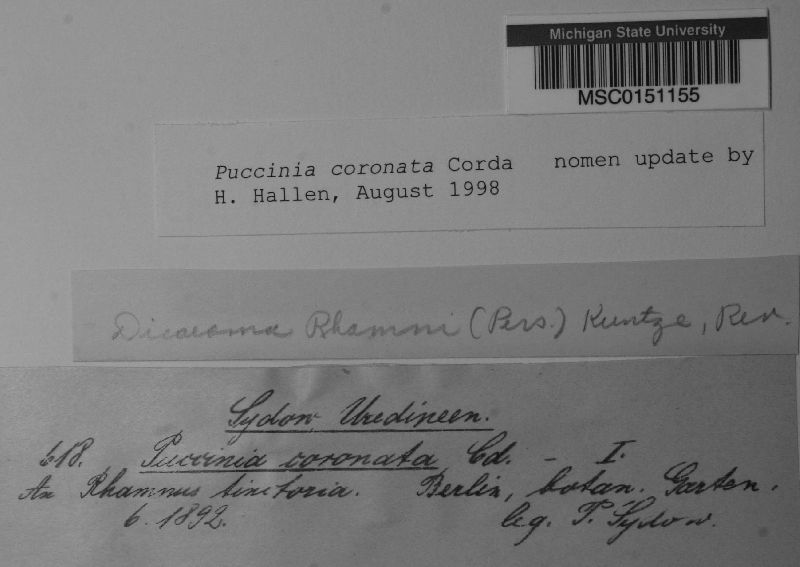 Michigan State University
MSC0151155
Puccinia coronata Corda nomen update by
H. Hallen, August 1998
Dicaeoma Rhamni (Pers.) Kuntze, Rev.
Sydow Uredineen.
618. Puccinia coronata Cd. - I.
An Rhamnus tinctoria. Berlin, botan. Garten.
6. 1892. leg. P. Sydow.